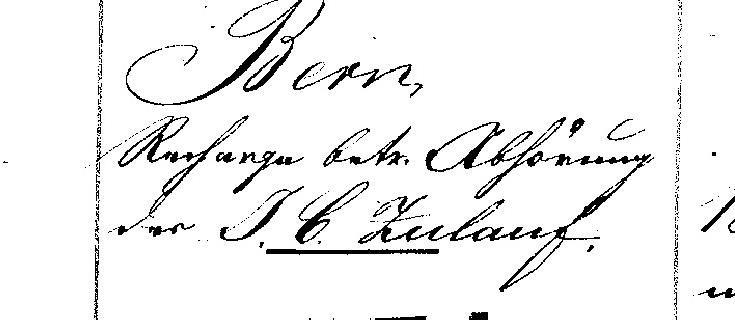 Bern,
Recharge betr. Abhörung
der J. C. Zulauf.